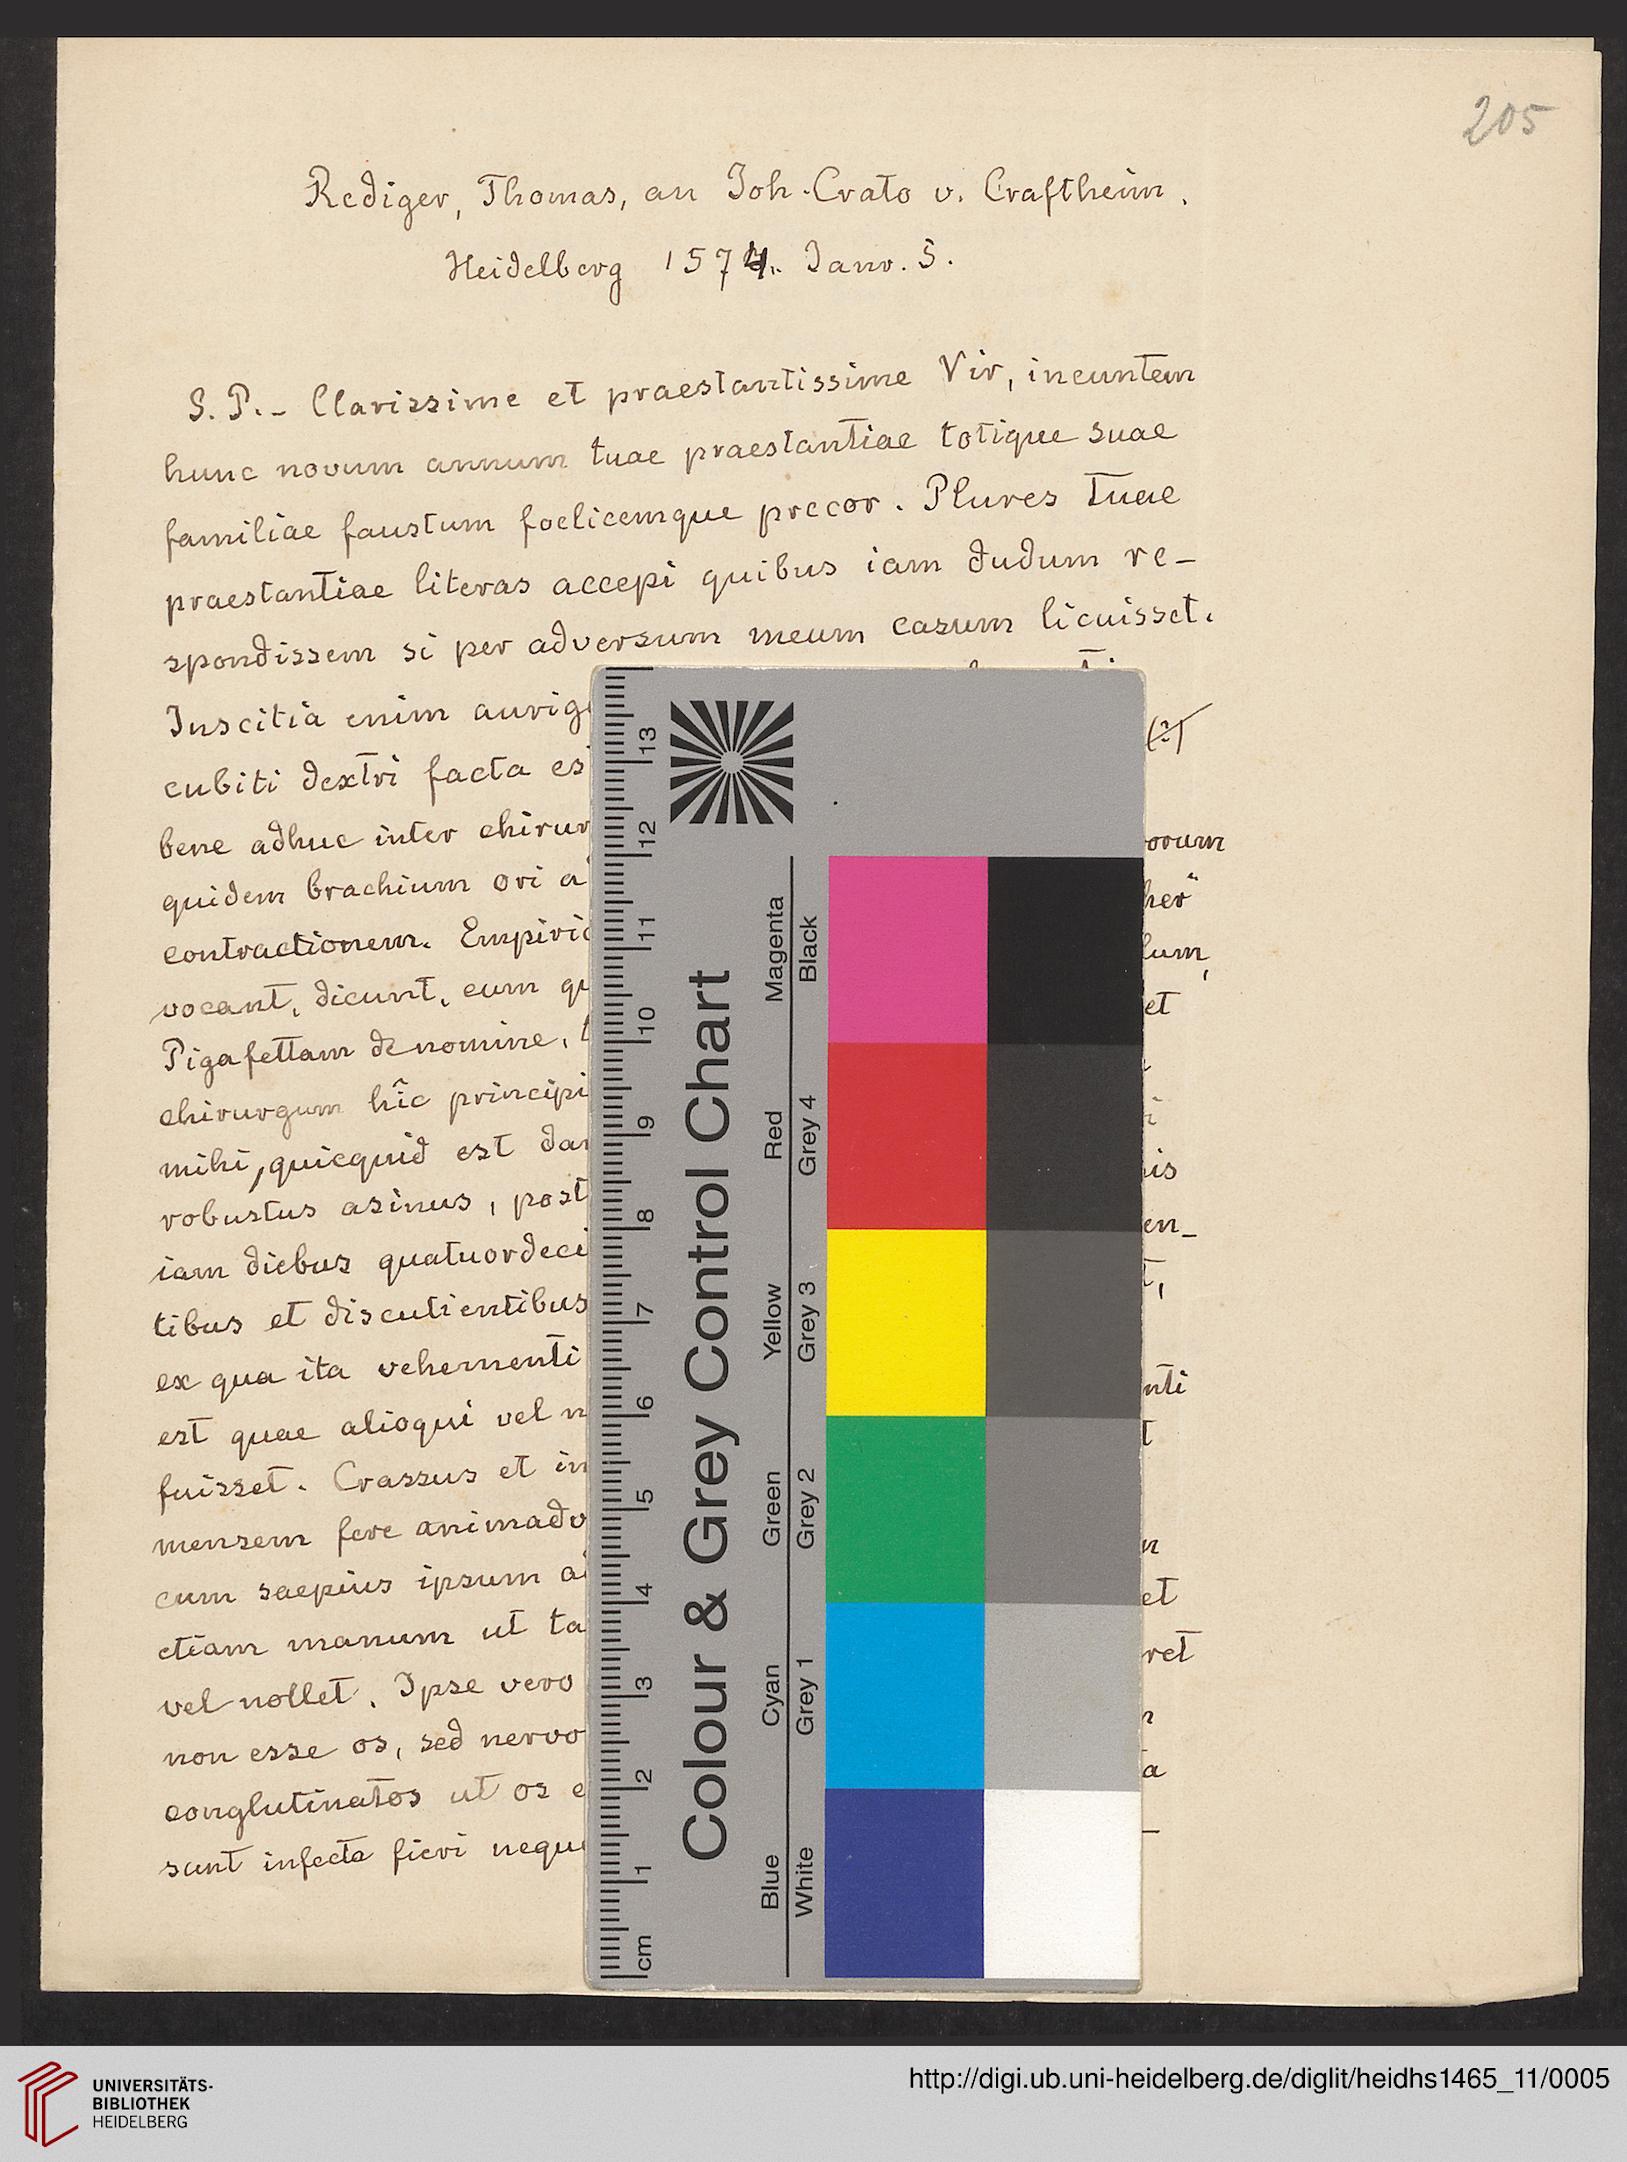 205
Rediger, Thomas, an Joh. Crato v. Craftheim.
Heidelberg 1574. Janr. 5.
S. P. – Clarissime et praestantissime Vir, ineuntem
hunc novum annum tuae praestantiae totique suae
familiae faustum foelicemque precor. Plures Tuae
praestantiae literas accepi quibus iam dudum re-
spondissem si per adversum meum casum licuisset.
Inscitia enim aurig
(?)
cubiti dextri facta es
bene adhuc inter chirur
orum
quidem brachium ori a
her"
contractionem. Empiric
lum,
vocant, dicunt, eum qu
et
Pigafettam de nomine,
chirurgum hîc principi
mihi, quicquid est dan
is
robustus asinus, post
en-
iam diebus quatuordeci
tibus et discutientibus
ex qua ita vehementi
nti
est quae alioqui vel n
fuisset. Crassus et in
mensem fere animadv
n
cum saepius ipsum a
et
etiam manum ut ta
ret
vel nollet. Ipse vero
non esse os, sed nervo
a
conglutinatos ut os e
sunt infecta fieri neque
Colour & Grey Control Chart
cm 1 2 3 4 5 6 7 8 9 10 11 12 13
Blue Cyan Green Yellow Red Magenta
White Grey 1 Grey 2 Grey 3 Grey 4 Black
UNIVERSITÄTS-
BIBLIOTHEK
HEIDELBERG
http://digi.ub.uni-heidelberg.de/diglit/heidhs1465_11/0005